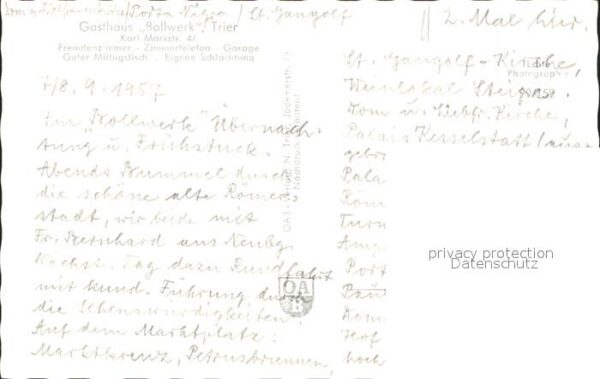 Dom u. Liebfrauenkirche / Porta Nigra / St. Gangolf
Gasthaus „Bollwerk", Trier
Karl Marxstr. 42
Fremdenzimmer - Zimmertelefon - Garage
Guter Mittagstisch . Eigene Schlachtung
7/8. 9. 1957
Im "Bollwerk" Übernach-
tung u. Frühstück.
Abends Bummel durch
die schöne alte Römer-
stadt, wir beide mit
Fr. Bernhard aus Neubg.
Nächst. Tag dazu Rundfahrt
mit kund. Führung durch
die Sehenswürdigkeiten!
Auf dem Marktplatz:
Marktkreuz, Petrusbrunnen,
OAB
// 2. Mal hier.
St. Gangolf-Kirche,
Weinlokal Steipe.
Dom u. Liebfr. Kirche,
Palais Kesselstatt (aus-
gebr
Pala
Röm
Turn
Amp
Port
Pau
Dom
Hof
hoch
Photograph
privacy protection
Datenschutz